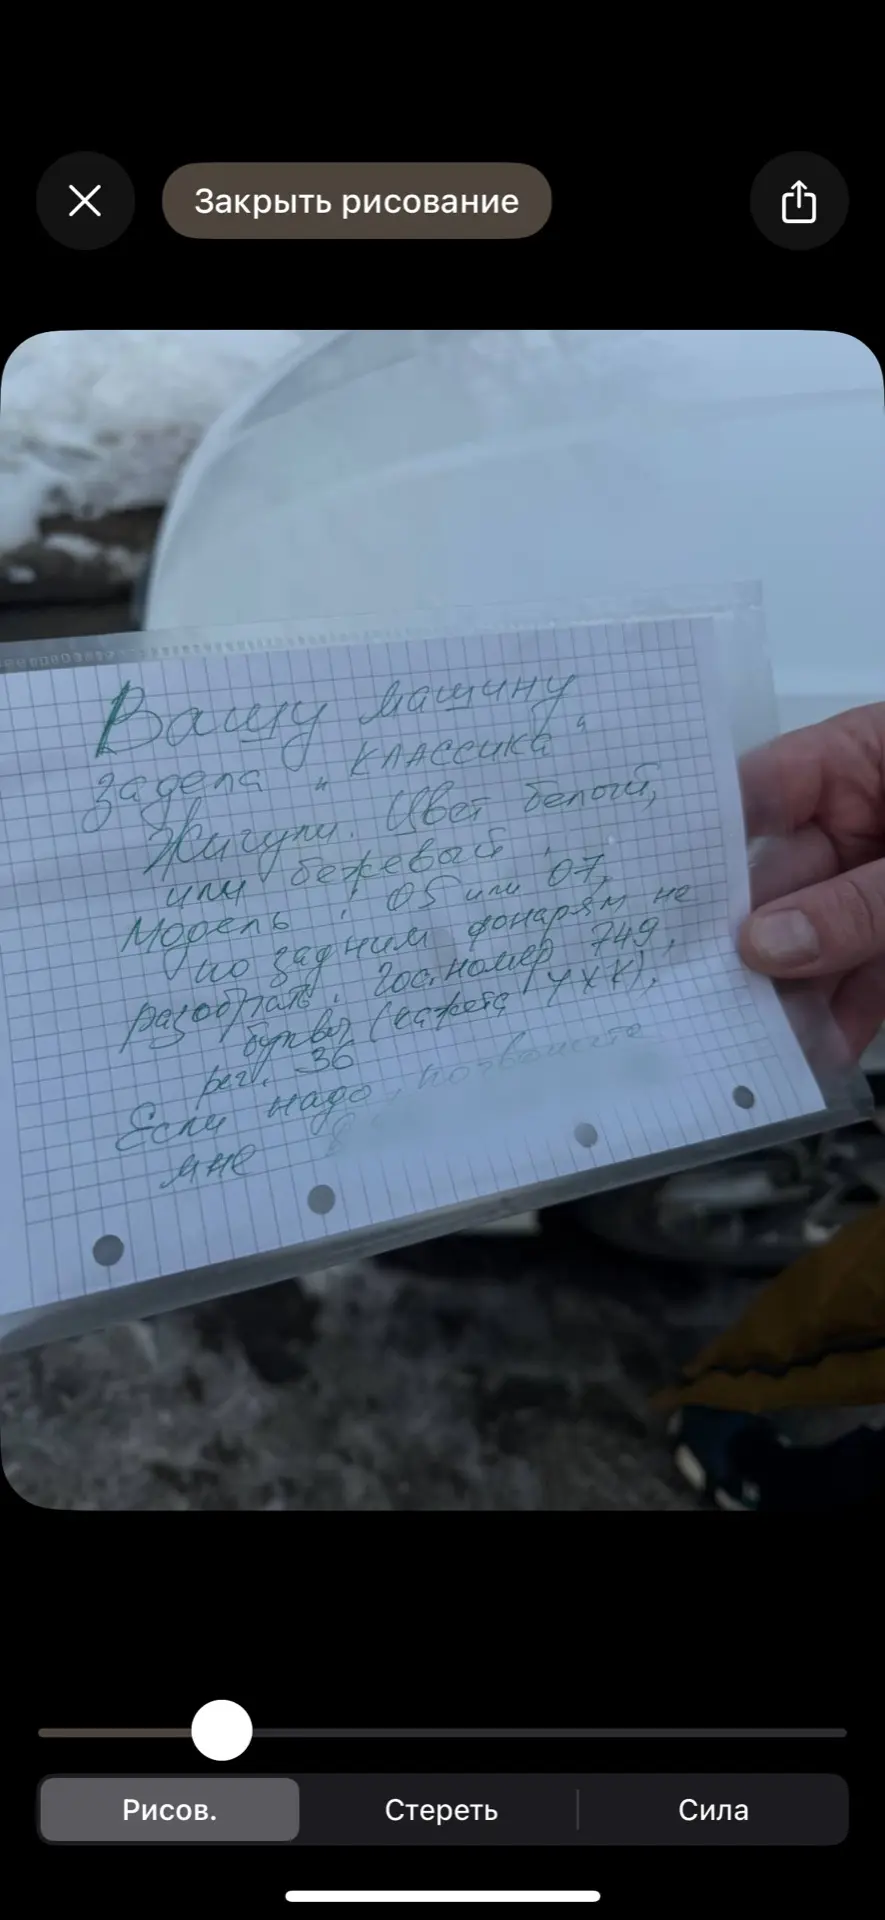 Закрыть рисование
Вашу машину
задела "классика"
Жигули. Цвет белый,
или бежевый.
Модель: 05 или 07,
по задним фонарям не
разобрать. Гос. номер 749,
буквы (кажета УХК),
рег. 36
Если надо, позвоните
мне 8
Рисов.
Стереть
Сила